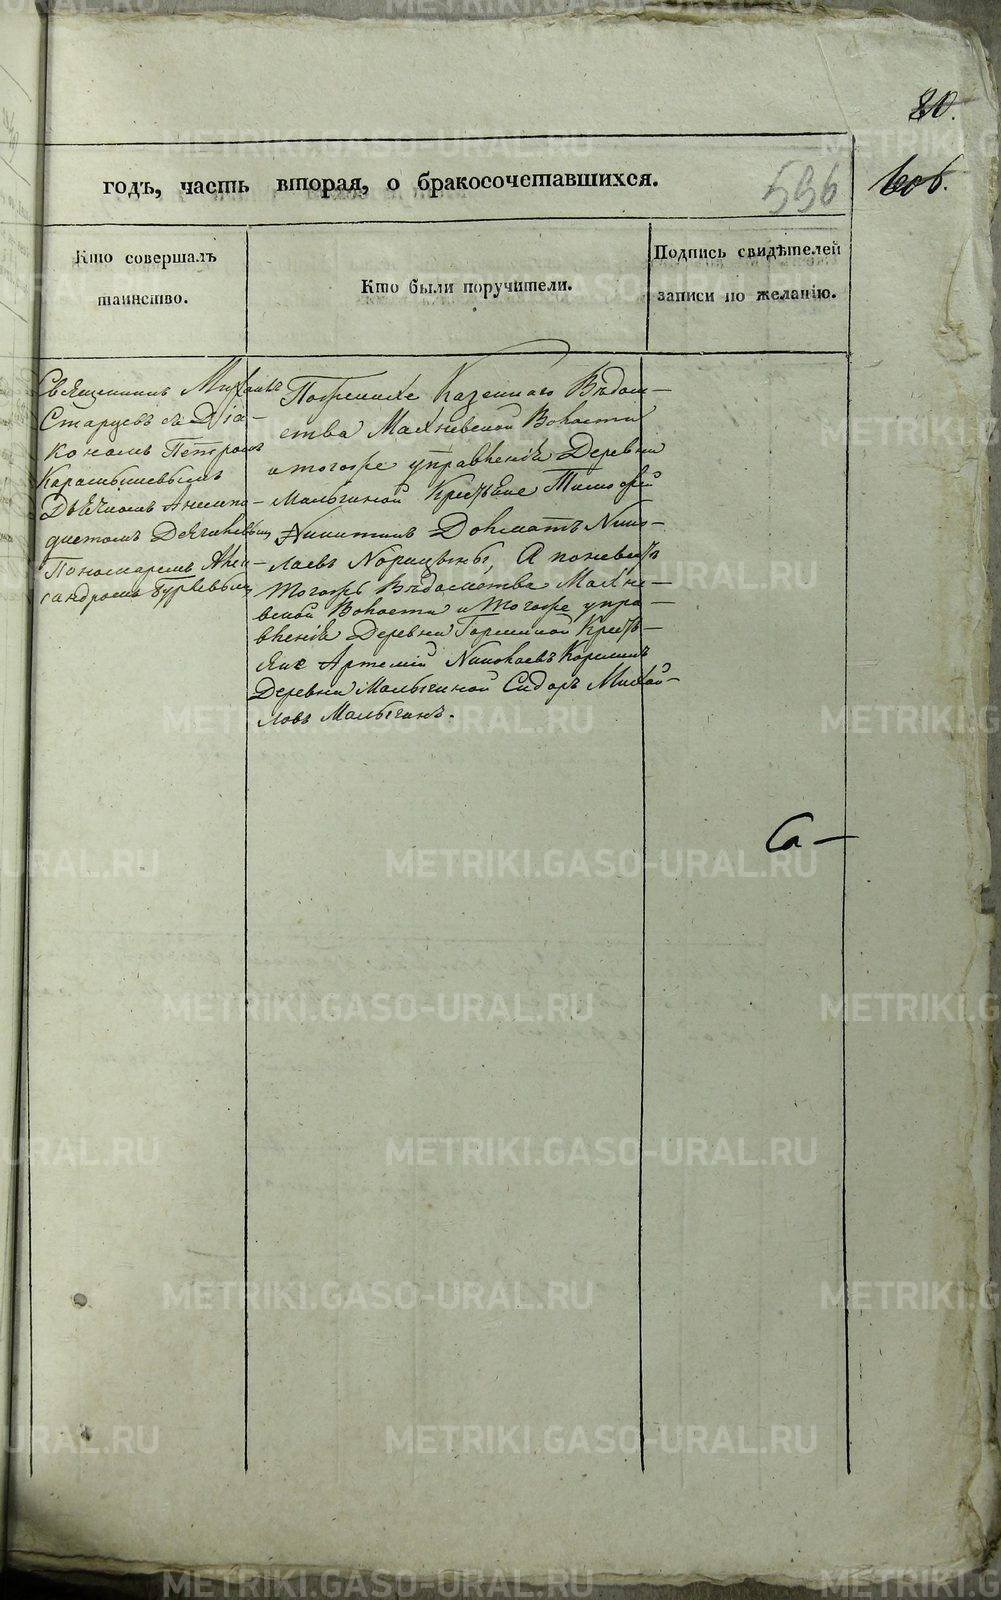 80.
606.
годъ, часть вторая, о бракосочетавшихся.
596
Кто совершалъ
таинство.
Кто были поручители.
Подпись свидѣтелей
записи по желанію.
Священникъ Михаилъ
Старцевъ съ Діа-
кономъ Петромъ
Карамышевымъ
Дьячкомъ
Пономаремъ Алек-
сандромъ
По женихе Казеннаго Вѣдом-
ства Махневской Волости
и тогоже управленія Деревни
Малыгиной Крестьяне Тимофей
Никитинъ Долматъ Нико-
лаевъ А по невестѣ
тогожъ Вѣдомства Махне-
вской Волости и тогоже упра-
вленія Деревни Гориной Кресть-
яне Артемій Николаевъ
Деревни Малыгиной Сидоръ Михай-
ловъ Малыгинъ.
METRIKI.GASO-URAL.RU